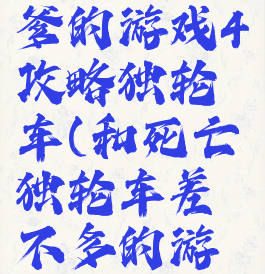 爹的游戏4
攻略独轮
车(和死亡
独轮车差
不多的游